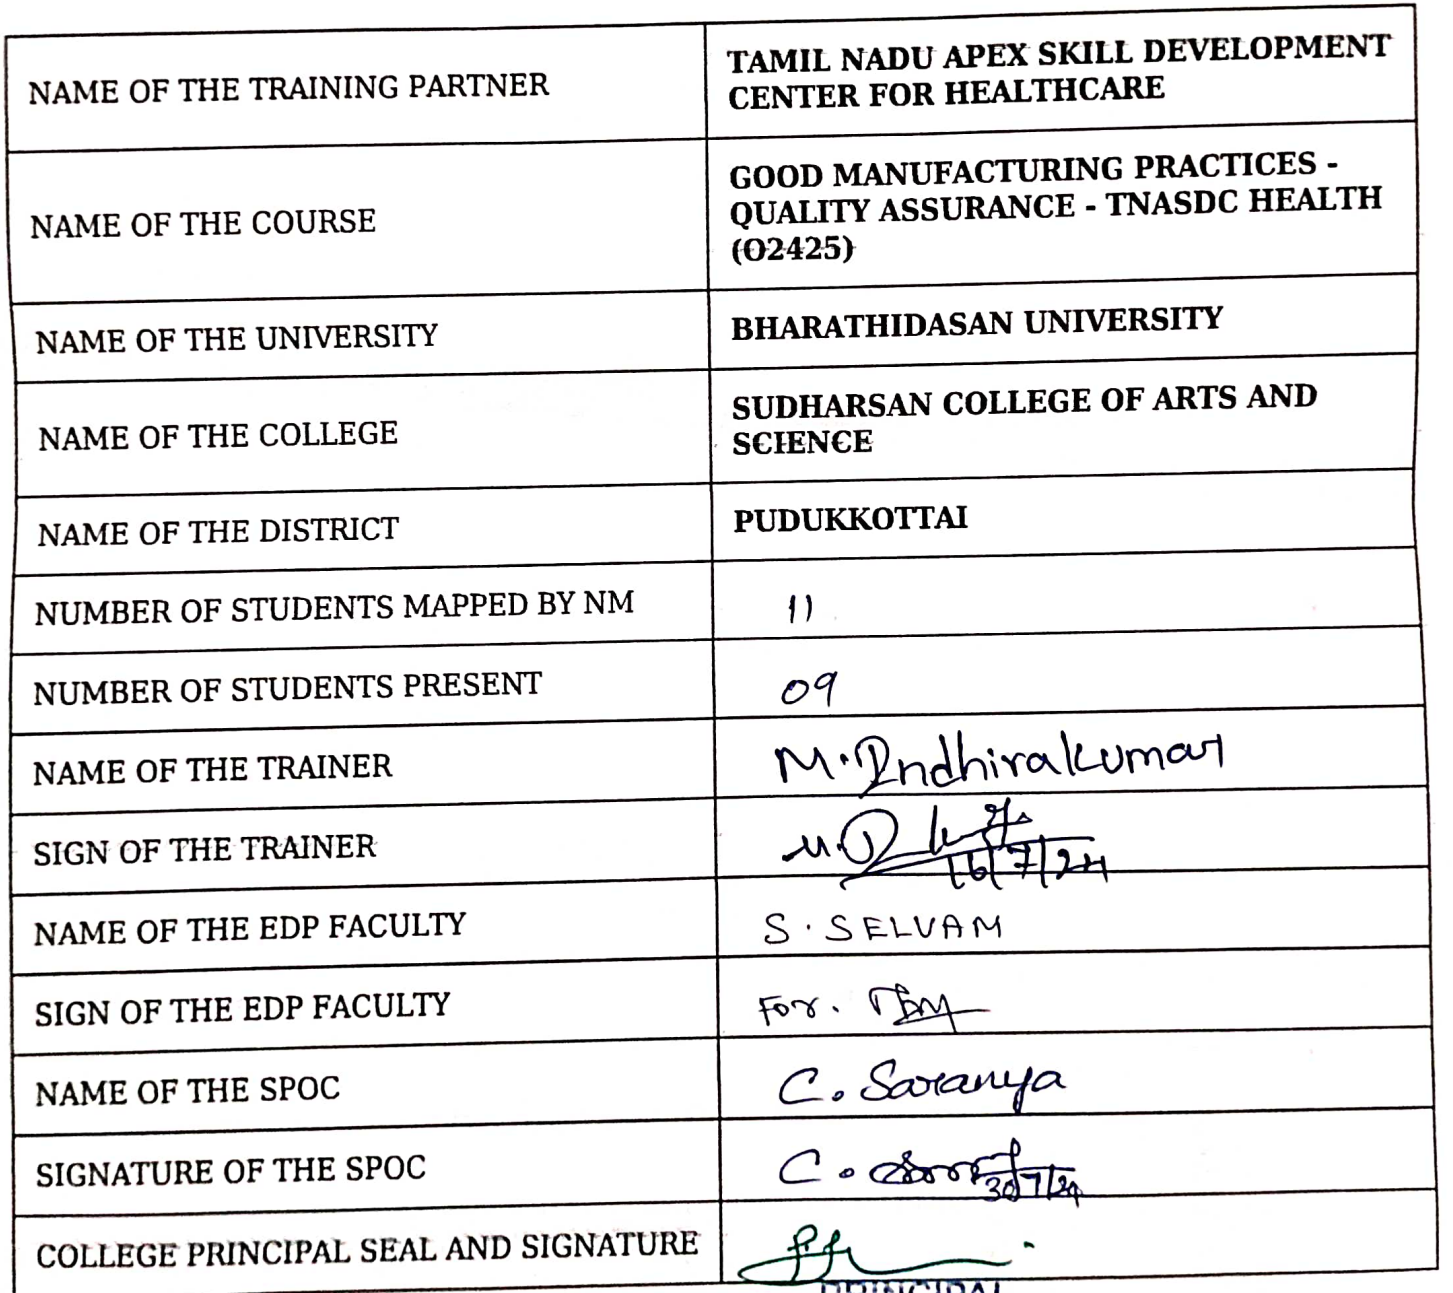 NAME OF THE TRAINING PARTNER
TAMIL NADU APEX SKILL DEVELOPMENT
CENTER FOR HEALTHCARE
NAME OF THE COURSE
GOOD MANUFACTURING PRACTICES -
QUALITY ASSURANCE - TNASDC HEALTH
(O2425)
NAME OF THE UNIVERSITY
BHARATHIDASAN UNIVERSITY
NAME OF THE COLLEGE
SUDHARSAN COLLEGE OF ARTS AND
SCIENCE
NAME OF THE DISTRICT
PUDUKKOTTAI
NUMBER OF STUDENTS MAPPED BY NM
11
NUMBER OF STUDENTS PRESENT
09
NAME OF THE TRAINER
M. Indhirakumar
SIGN OF THE TRAINER
16/7/24
NAME OF THE EDP FACULTY
S. SELVAM
SIGN OF THE EDP FACULTY
For.
NAME OF THE SPOC
C. Saranya
SIGNATURE OF THE SPOC
C.
30/7/24
COLLEGE PRINCIPAL SEAL AND SIGNATURE
PRINCIPAL